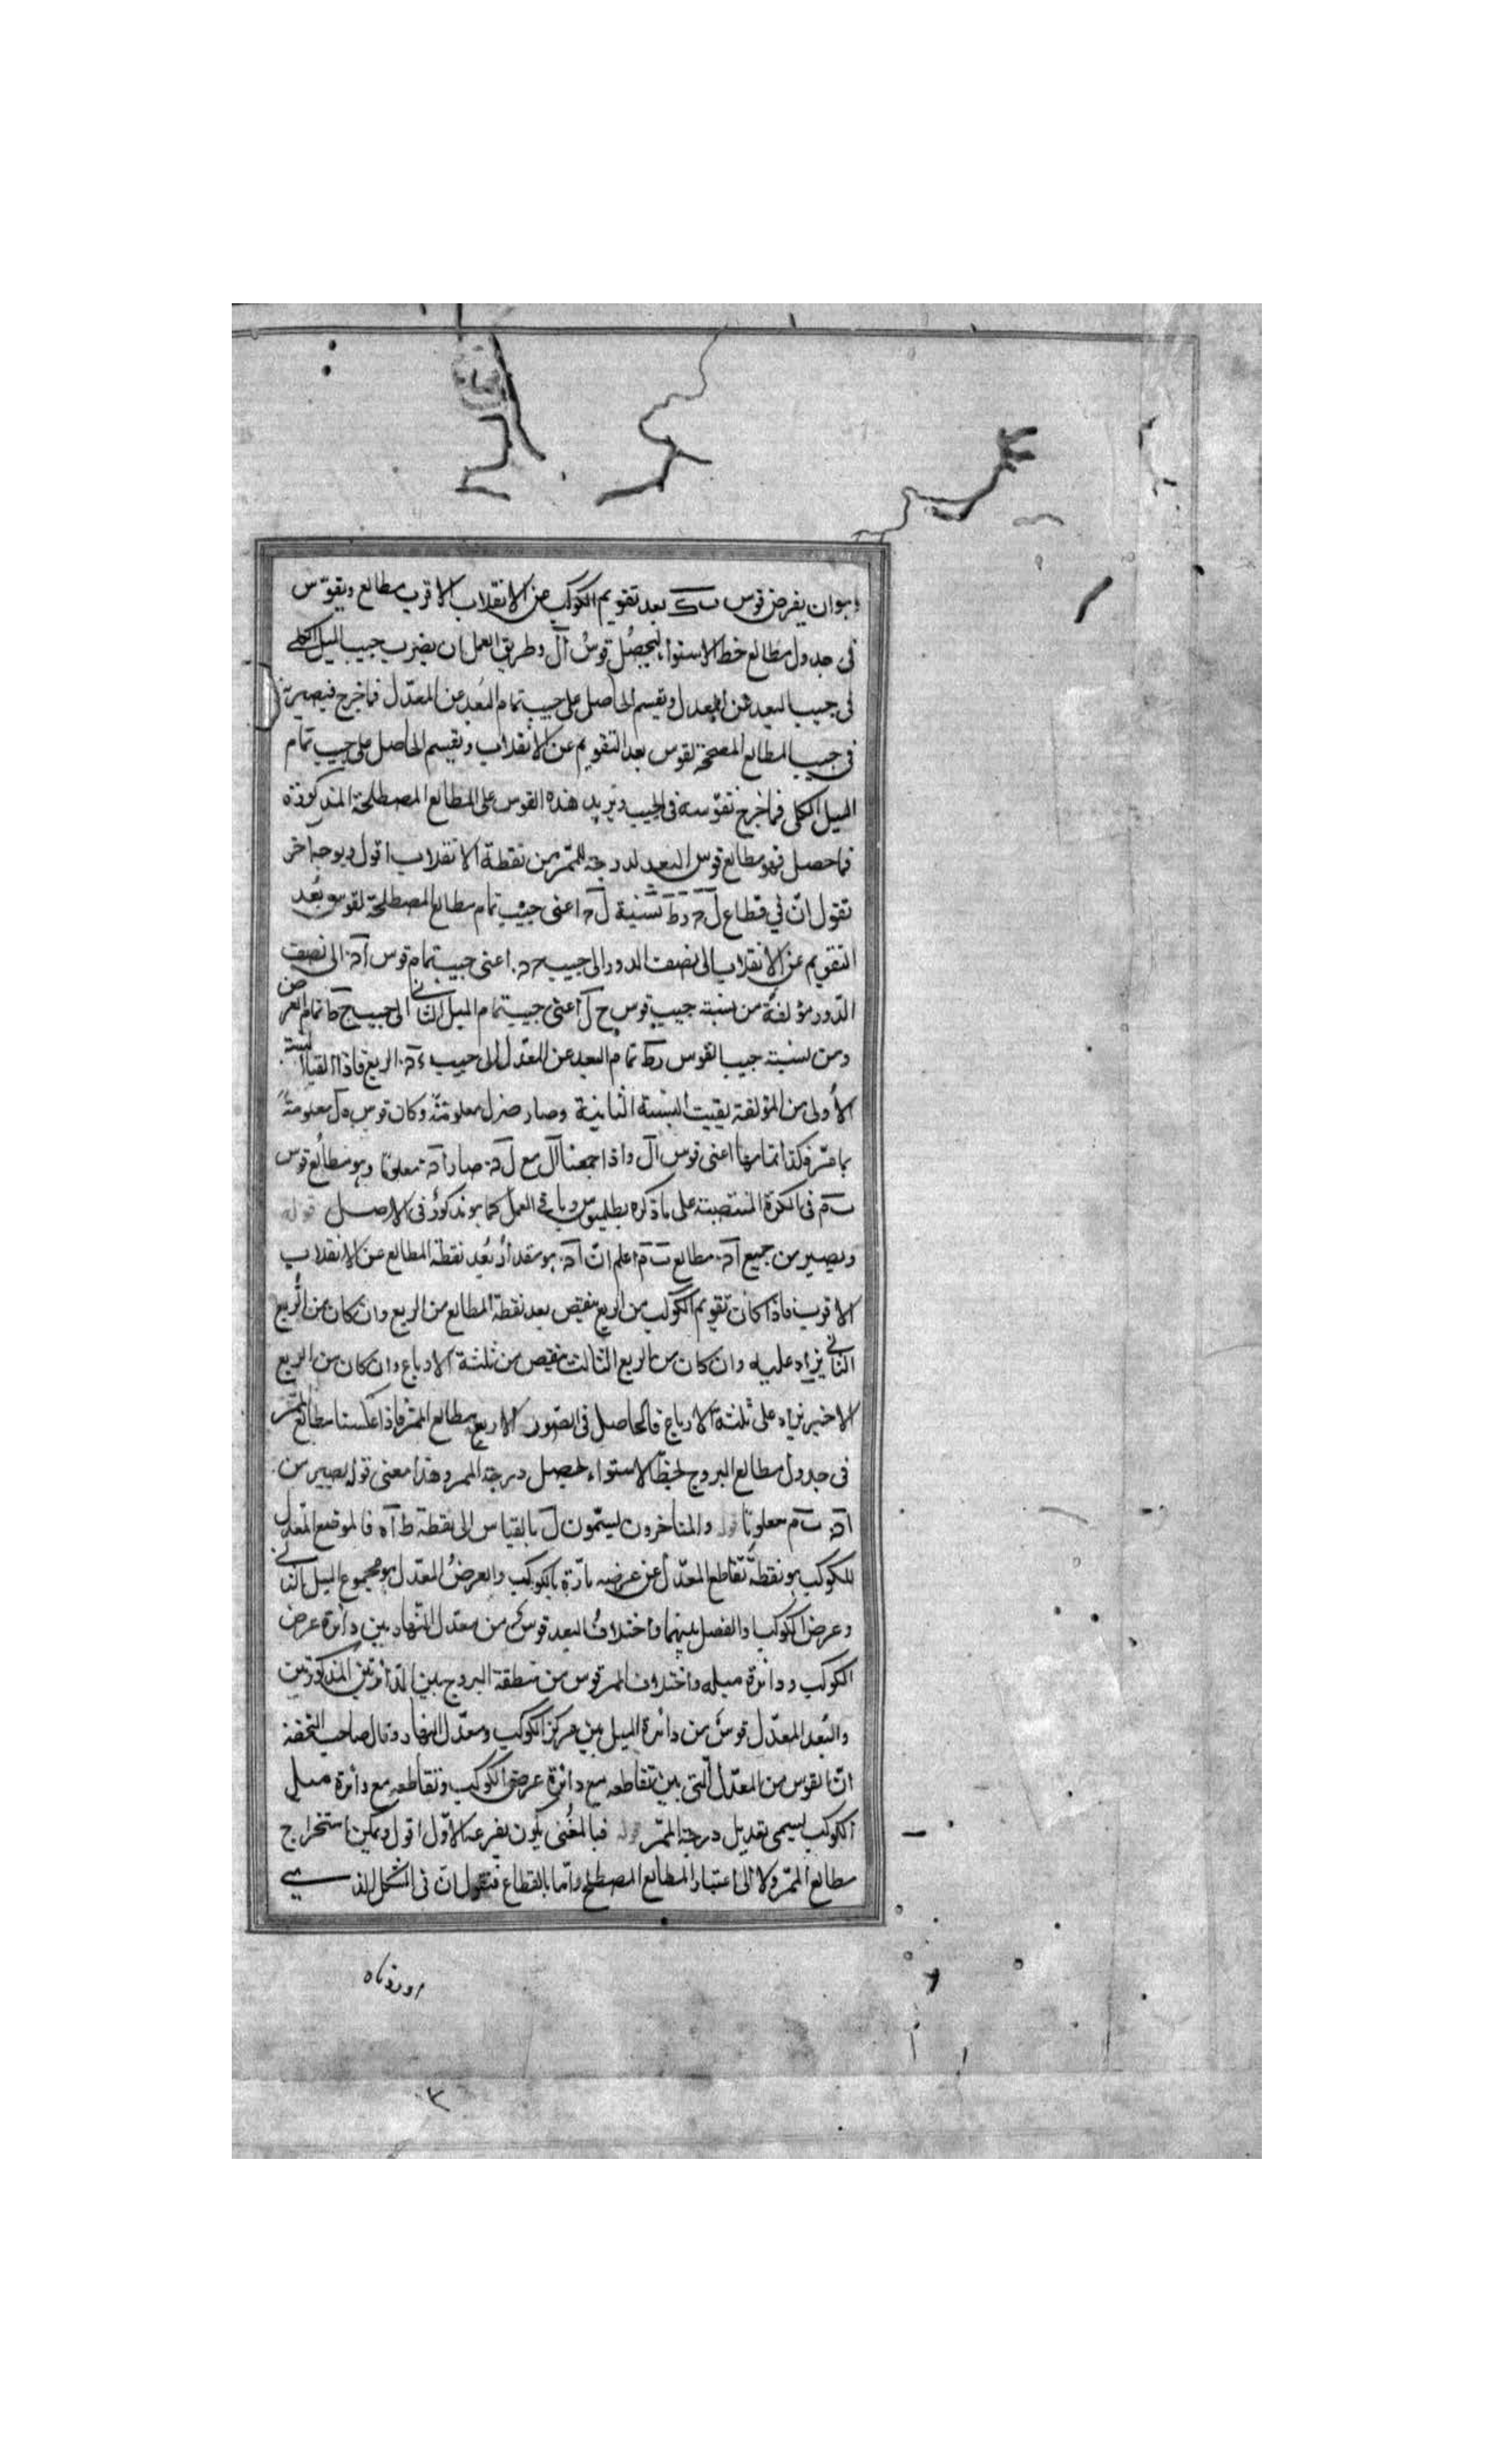 وهو ان يفرض قوس ب ك بعد تقويم الكوكب عن الانقلاب الاقرب مطالع ويقوّس
فى جدول مطالع خط الاستواء ليحصُل قوسُ اَل وطريق العمل ان يضرب جيب الميل الكلى
فى جيب البعد عن المعدل ويقسم الحاصل على جيب تمام البُعد عن المعدّل فما خرج فيضربه
فى جيب المطالع المصححة لقوس بعد التقويم عن الانقلاب ويقسم الحاصل على جيب تمام
الميل الكلى فما خرج نقوّسه فى الجيب ونزيد هذه القوس على المطالع المصطلحة المذكورة
فما حصل فهو مطالع قوس البعد لدرجة الممر من نقطة الانقلاب اقول وبوجه آخر
نقول انّ فى قطاع نسبة اعنى جيب تمام مطالع المصطلحة لقوس بُعد
التقويم عن الانقلاب الى نصف الدور الى جيب اعنى جيب تمام قوس اه الى نصف
الدّور مؤلفة من نسبة جيب قوس ح ل اعنى جيب تمام الميل الثانى الى جيب ح ط تمام العرض
ومن نسبة جيب القوس تمام البعد عن المعدّل الى جيب الربع فاذا القينا النسبة
الاُولى من المؤلفة بقيت النسبة الثانية وصار معلومة وكان قوس معلومةً
بما مرّ فكذا تمامها اعنى قوس اَل واذا جمعنا اَل مع ل ه صار اه معلومًا وهو مطالع قوس
ب م فى الكرة المنتصبة على ما ذكره بطلميوس وباقى العمل كما هو مذكورٌ فى الاصل قوله
ويصير من جميع اه مطالع ب م اعلم انّ اه هو مقدار بُعد نقطة المطالع عن الانقلاب
الاقرب فاذا كان تقويم الكوكب من الربع ينقص بعد نقطة المطالع من الربع وان كان من الرُّبع
الثانى يزاد عليه وان كان من الربع الثالث ينقص من ثلثة الارباع وان كان من الربع
الاخير يزاد على ثلثة الارباع فالحاصل فى الصور الاربع مطالع الممرّ فاذا عكسنا مطالع الممرّ
فى جدول مطالع البروج لخطّ الاستواء يحصل درجة الممر وهذا معنى قوله يصير من
اه ب م معلومًا قوله والمتاخرون يسمّون ل بالقياس الى نقطة ط آه فالموضع المعدّل
للكوكب هو نقطة تقاطع المعدّل عن عرضيه مارّة بالكوكب والعرضُ المعدّل هو مجموع الميل الثانى
وعرض الكوكب او الفصل بينهما واختلافُ البعد قوسٌ من معدل النّهار بين دائرة عرض
الكوكب ودائرة ميله واختلاف الممر قوس من منطقة البروج بين الدّائرتين المذكورتين
والبُعد المعدّل قوسٌ من دائرة الميل بين مركز الكوكب ومعدّل النهار وقال صاحب التحفة
انّ القوس من المعدّل الّتى بين تقاطعه مع دائرة عرض الكوكب وتقاطعه مع دائرة ميل
الكوكب يسمى تعديل درجة الممرّ قوله فبالمُغنى يكون بفرعه الاوّل اقول ويمكن استخراج
مطالع الممرّ ولا الى اعتبار المطالع المصطلح وامّا بالقطاع فنقول انّ فى الشكل الذى
اوردناه
٣